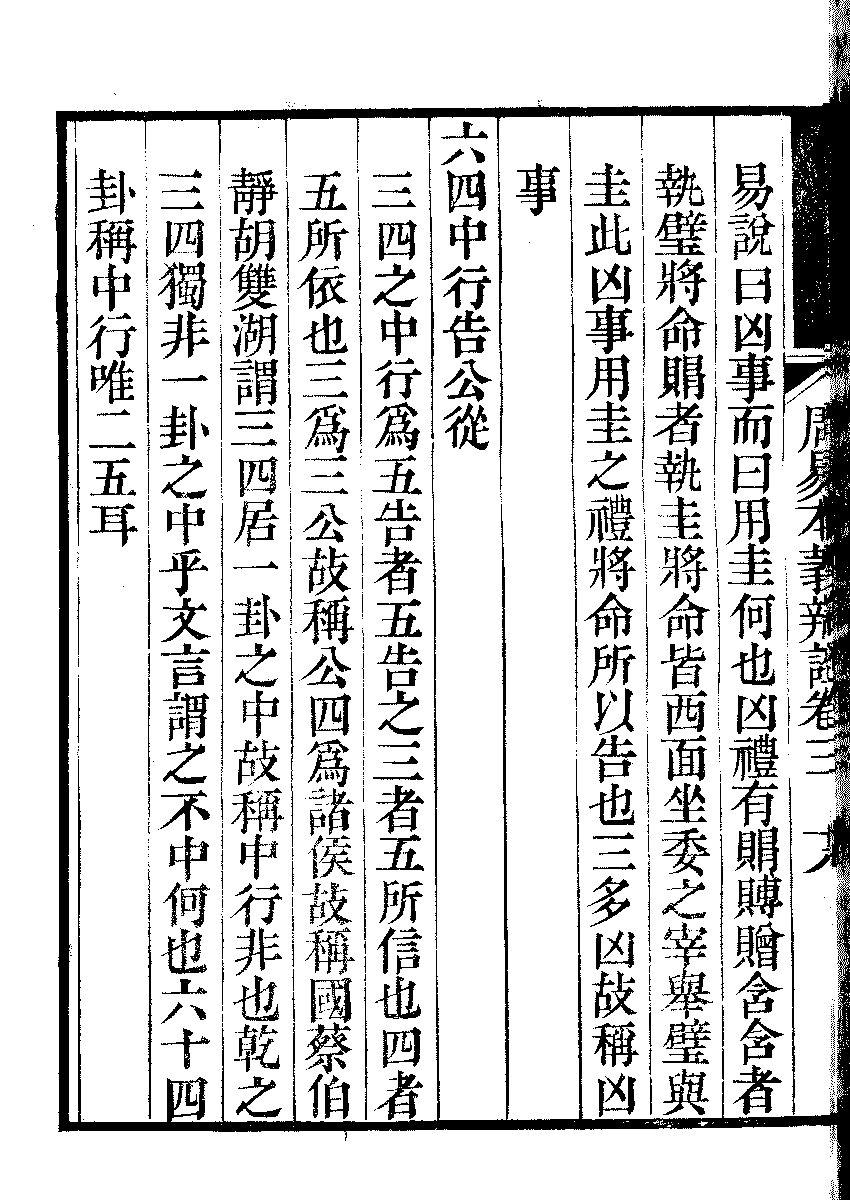 周易本義辨證卷三
易說曰凶事而曰用圭何也凶禮有賵賻贈含含者
執璧將命賵者執圭將命皆西面坐委之宰舉璧與
圭此凶事用圭之禮將命所以告也三多凶故稱凶
事
六四中行告公從
三四之中行爲五告者五告之三者五所信也四者
五所依也三爲三公故稱公四爲諸侯故稱國蔡伯
靜胡雙湖謂三四居一卦之中故稱中行非也乾之
三四獨非一卦之中乎文言謂之不中何也六十四
卦稱中行唯二五耳